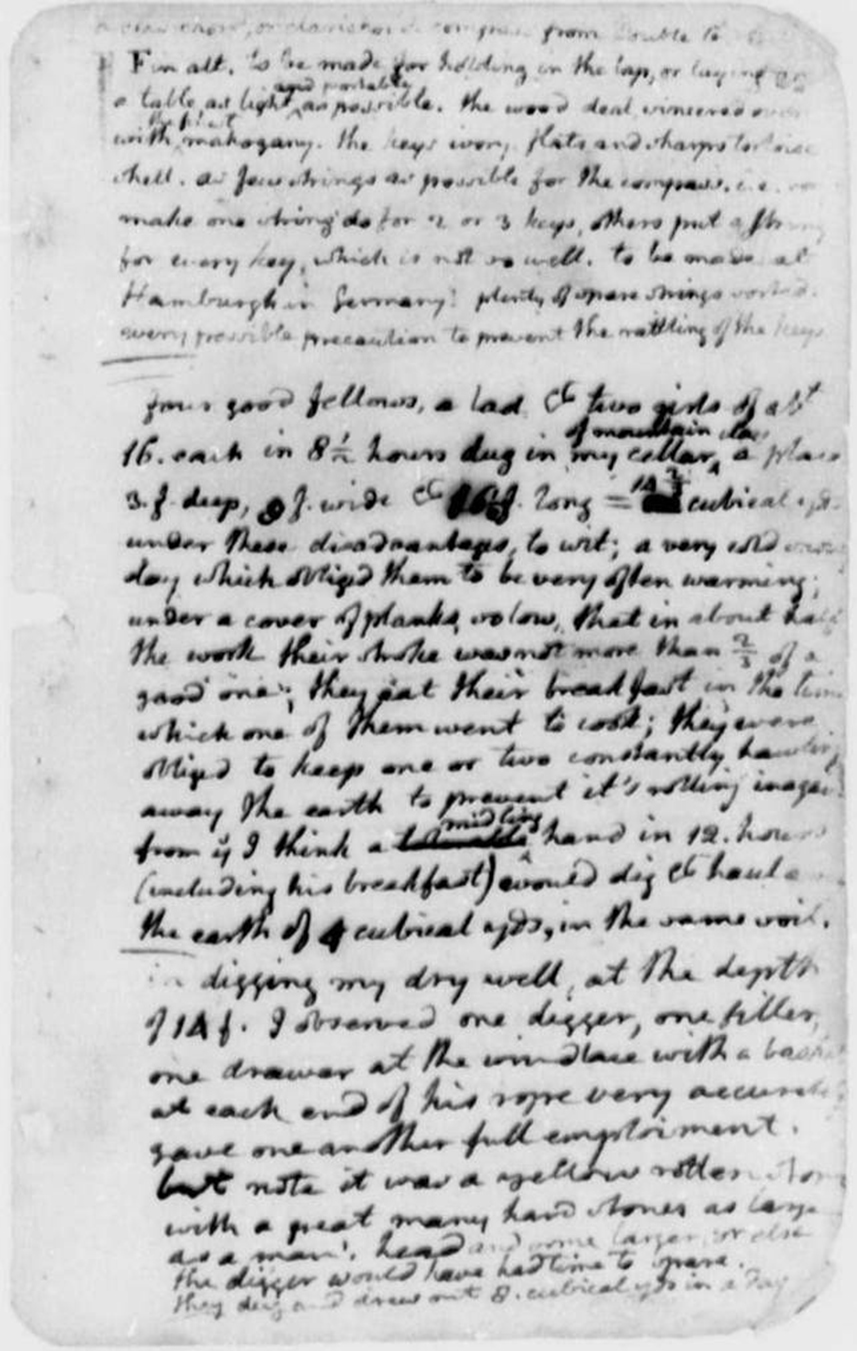 a clavichord, or clarichord. compass from Double to
F in alt. to be made for holding in the lap, or laying on
a table, as light and portable as possible. the wood deal, vineered over
with the best mahogany. the keys ivory, flats and sharps tortoise
shell. as few strings as possible for the compass. i.e.
make one string do for 2 or 3 keys, others put a string
for every key, which is not so well. to be made at
Hamburgh in Germany. plenty of spare strings
every possible precaution to prevent the rattling of the keys
four good fellows, a lad & two girls of abt
16. each in 8 1/2 hours dug in my cellar of mountain clay, a place
3.f. deep, 8 f. wide & 16 1/2 f. long = 14 2/3 cubical yds.
under these disadvantages, to wit; a very cold snowy
day which obliged them to be very often warming;
under a cover of planks, so low, that in about half
the work their stroke was not more than 2/3 of a
good one; they eat their breakfast in the time
which one of them went to cook; they were
obliged to keep one or two constantly hawling
away the earth to prevent it's rolling in again
from ys I think a midling hand in 12. hours
(including his breakfast) could dig & haul away
the earth of 4 cubical yds, in the same soil.
in digging my dry well, at the depth
of 14 f. I observed one digger, one filler,
one drawer at the windlace with a basket
at each end of his rope very accurately
gave one another full emploiment.
but note it was a yellow rotten stone
with a great many hard stones as large
as a man's head and some larger, or else
the digger would have had time to spare.
they dug and drew out 8. cubical yds in a day